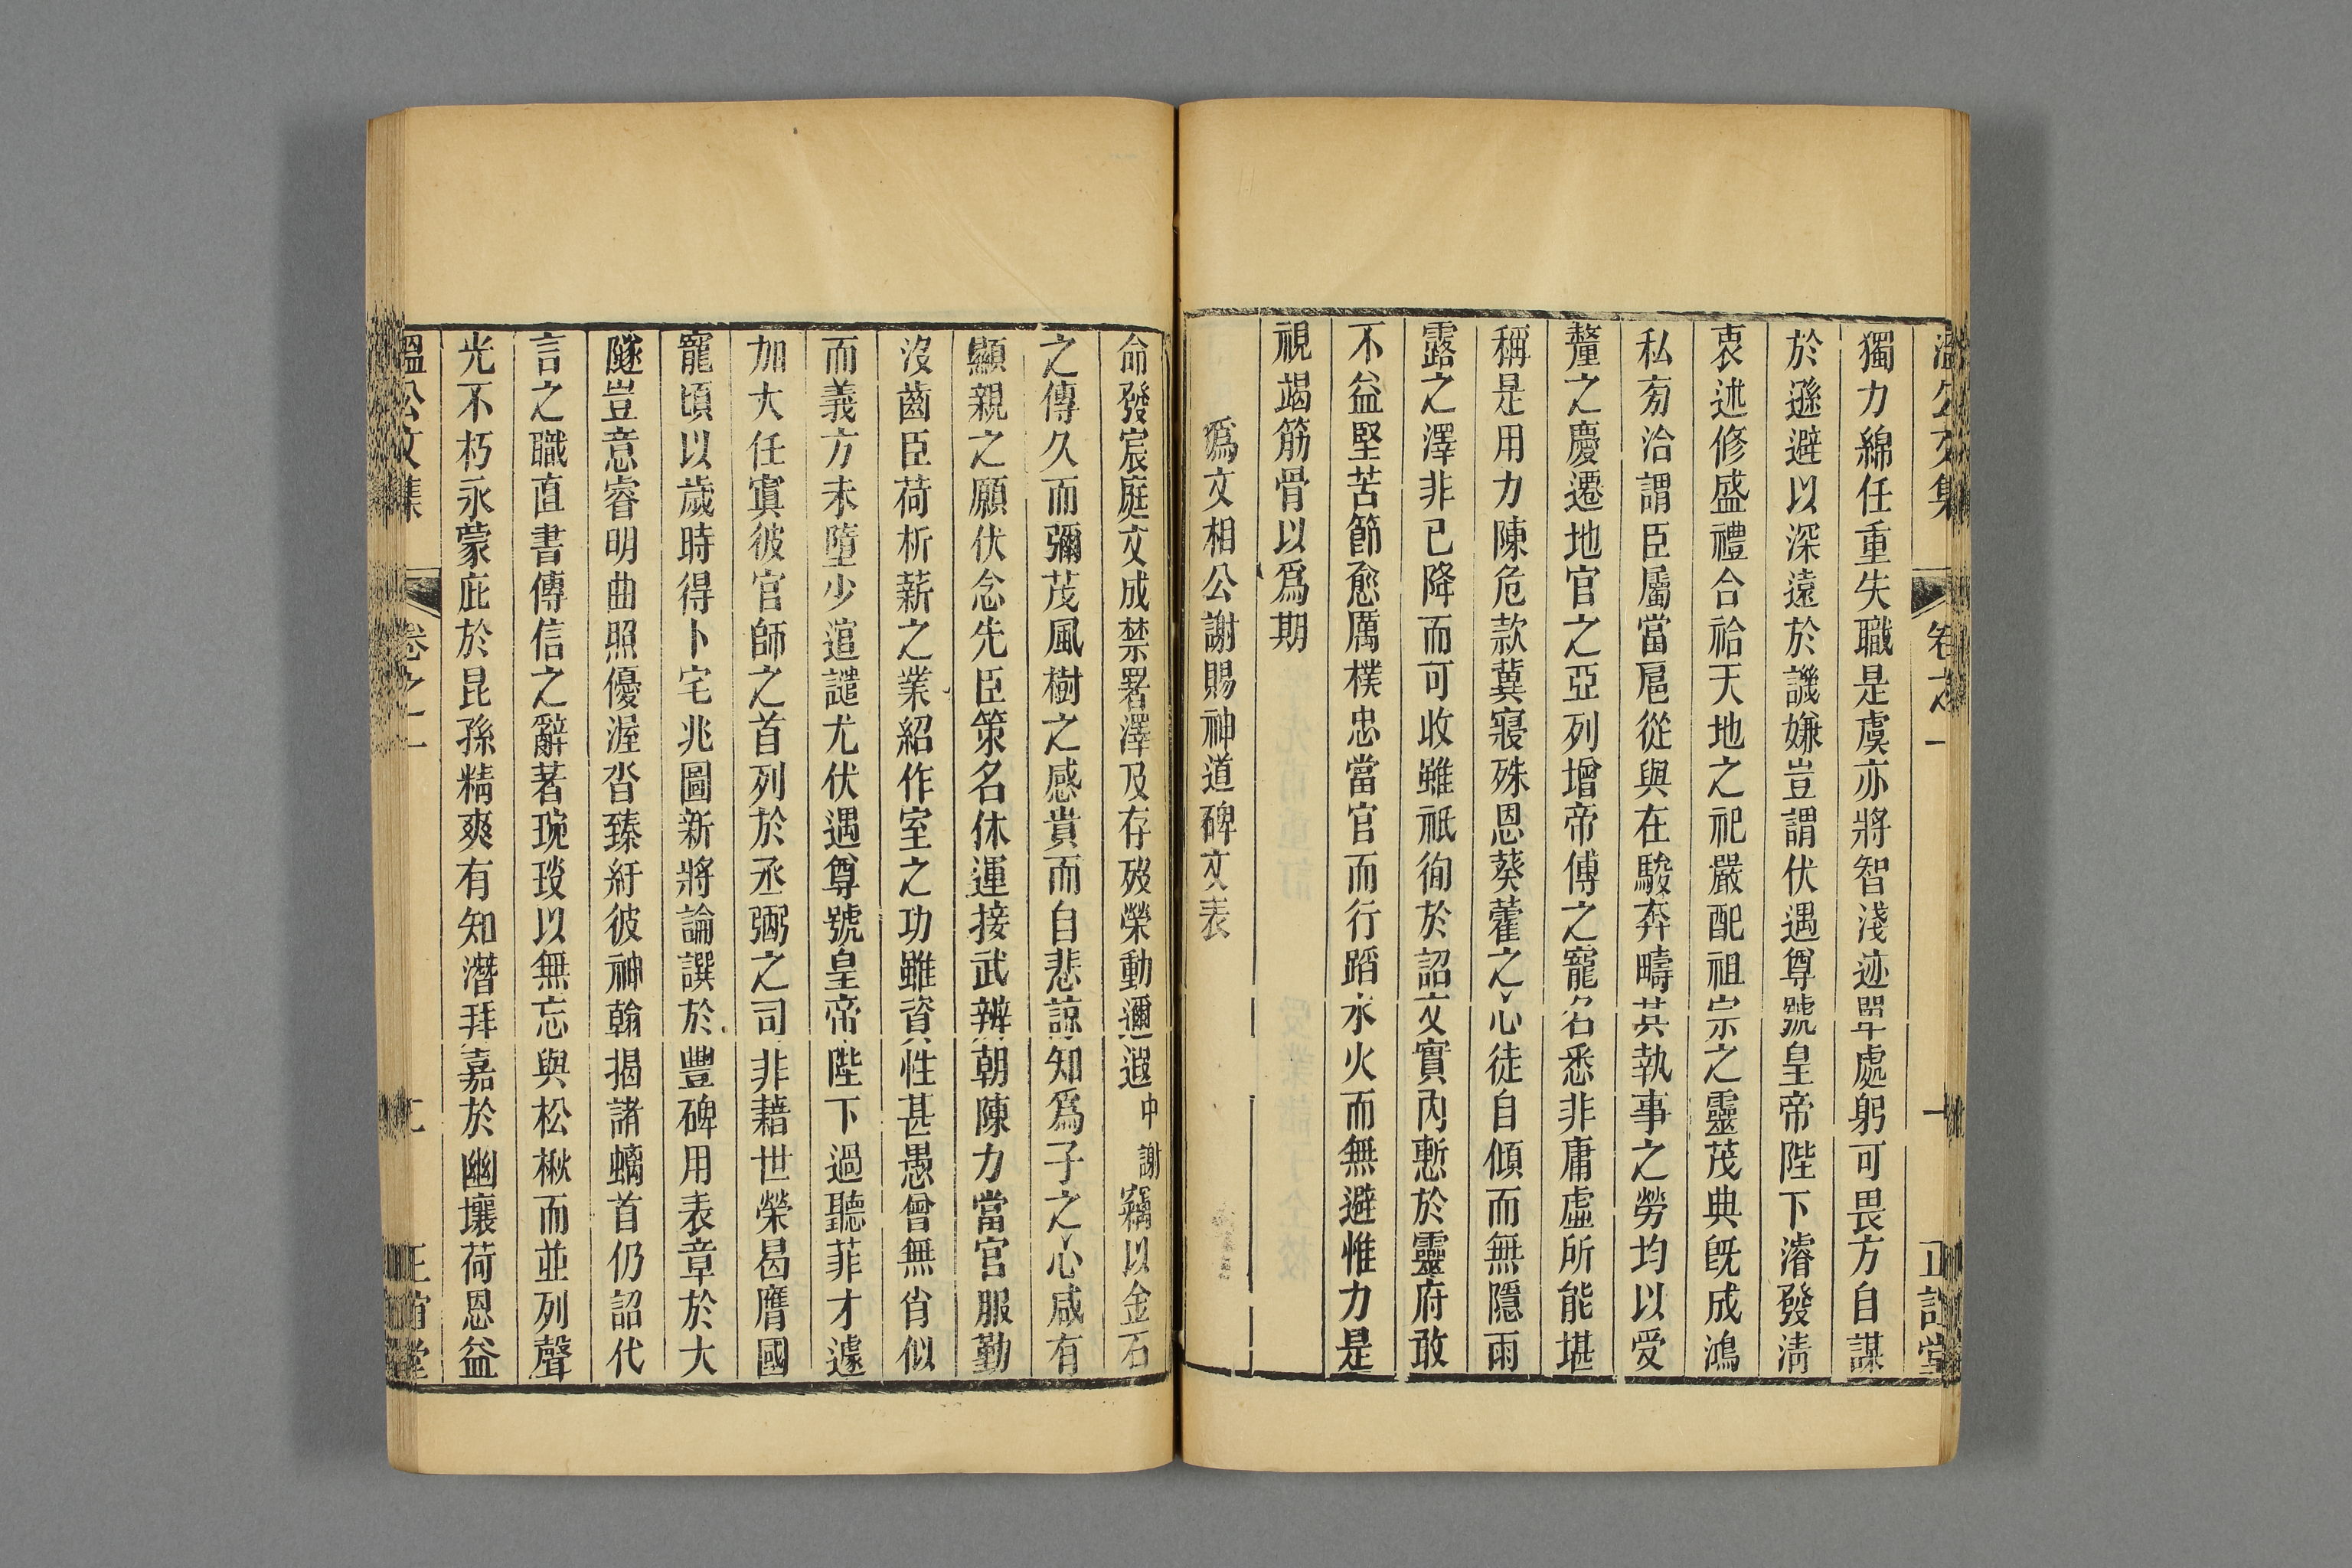 溫公文集 卷之一 一 正誼堂
獨力綿任重失職是虞亦將智淺迹單處躬可畏方自謀
於遜避以深遠於譏嫌豈謂伏遇尊號皇帝陛下濬發淸
衷述修盛禮合祫天地之祀嚴配祖宗之靈茂典旣成鴻
私旁洽謂臣屬當扈從與在駿奔疇其執事之勞均以受
釐之慶遷地官之亞列增帝傅之寵名悉非庸虛所能堪
稱是用力陳危款冀寢殊恩葵藿之心徒自傾而無隱雨
露之澤非已降而可收雖祇徇於詔文實內慙於靈府敢
不益堅苦節愈厲樸忠當官而行蹈水火而無避惟力是
視竭筋骨以爲期
爲文相公謝賜神道碑文表
命發宸庭文成禁署澤及存歿榮動邇遐中謝竊以金石
之傳久而彌茂風樹之感貴而自悲諒知爲子之心咸有
顯親之願伏念先臣策名休運接武辨朝陳力當官服勤
沒齒臣荷析薪之業紹作室之功雖資性甚愚曾無肖似
而義方未墮少逭譴尤伏遇尊號皇帝陛下過聽菲才遽
加大任寘彼官師之首列於丞弼之司非藉世榮曷膺國
寵頃以歲時得卜宅兆圖新將論譔於豐碑用表章於大
隧豈意睿明曲照優渥沓臻紆彼神翰揭諸螭首仍詔代
言之職直書傳信之辭著琬琰以無忘與松楸而並列聲
光不朽永蒙庇於昆孫精爽有知潛拜嘉於幽壤荷恩益
溫公文集 卷之一 二 正誼堂